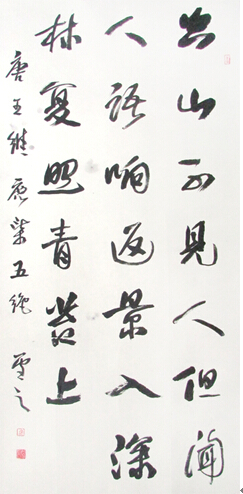 空山不見人但聞
人語响返景入深
林复照青苔上
唐王維鹿柴五絕